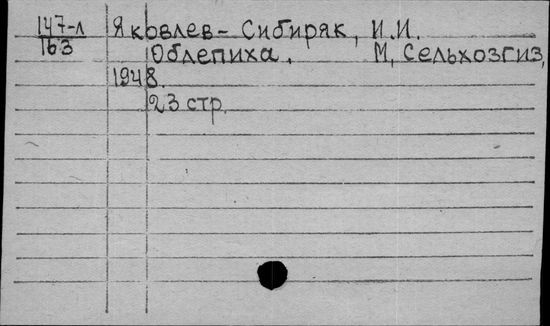 147-л Яковлев-Сибиряк, И.И.
163 Облепиха. М, Сельхозгиз,
1948.
23 стр.